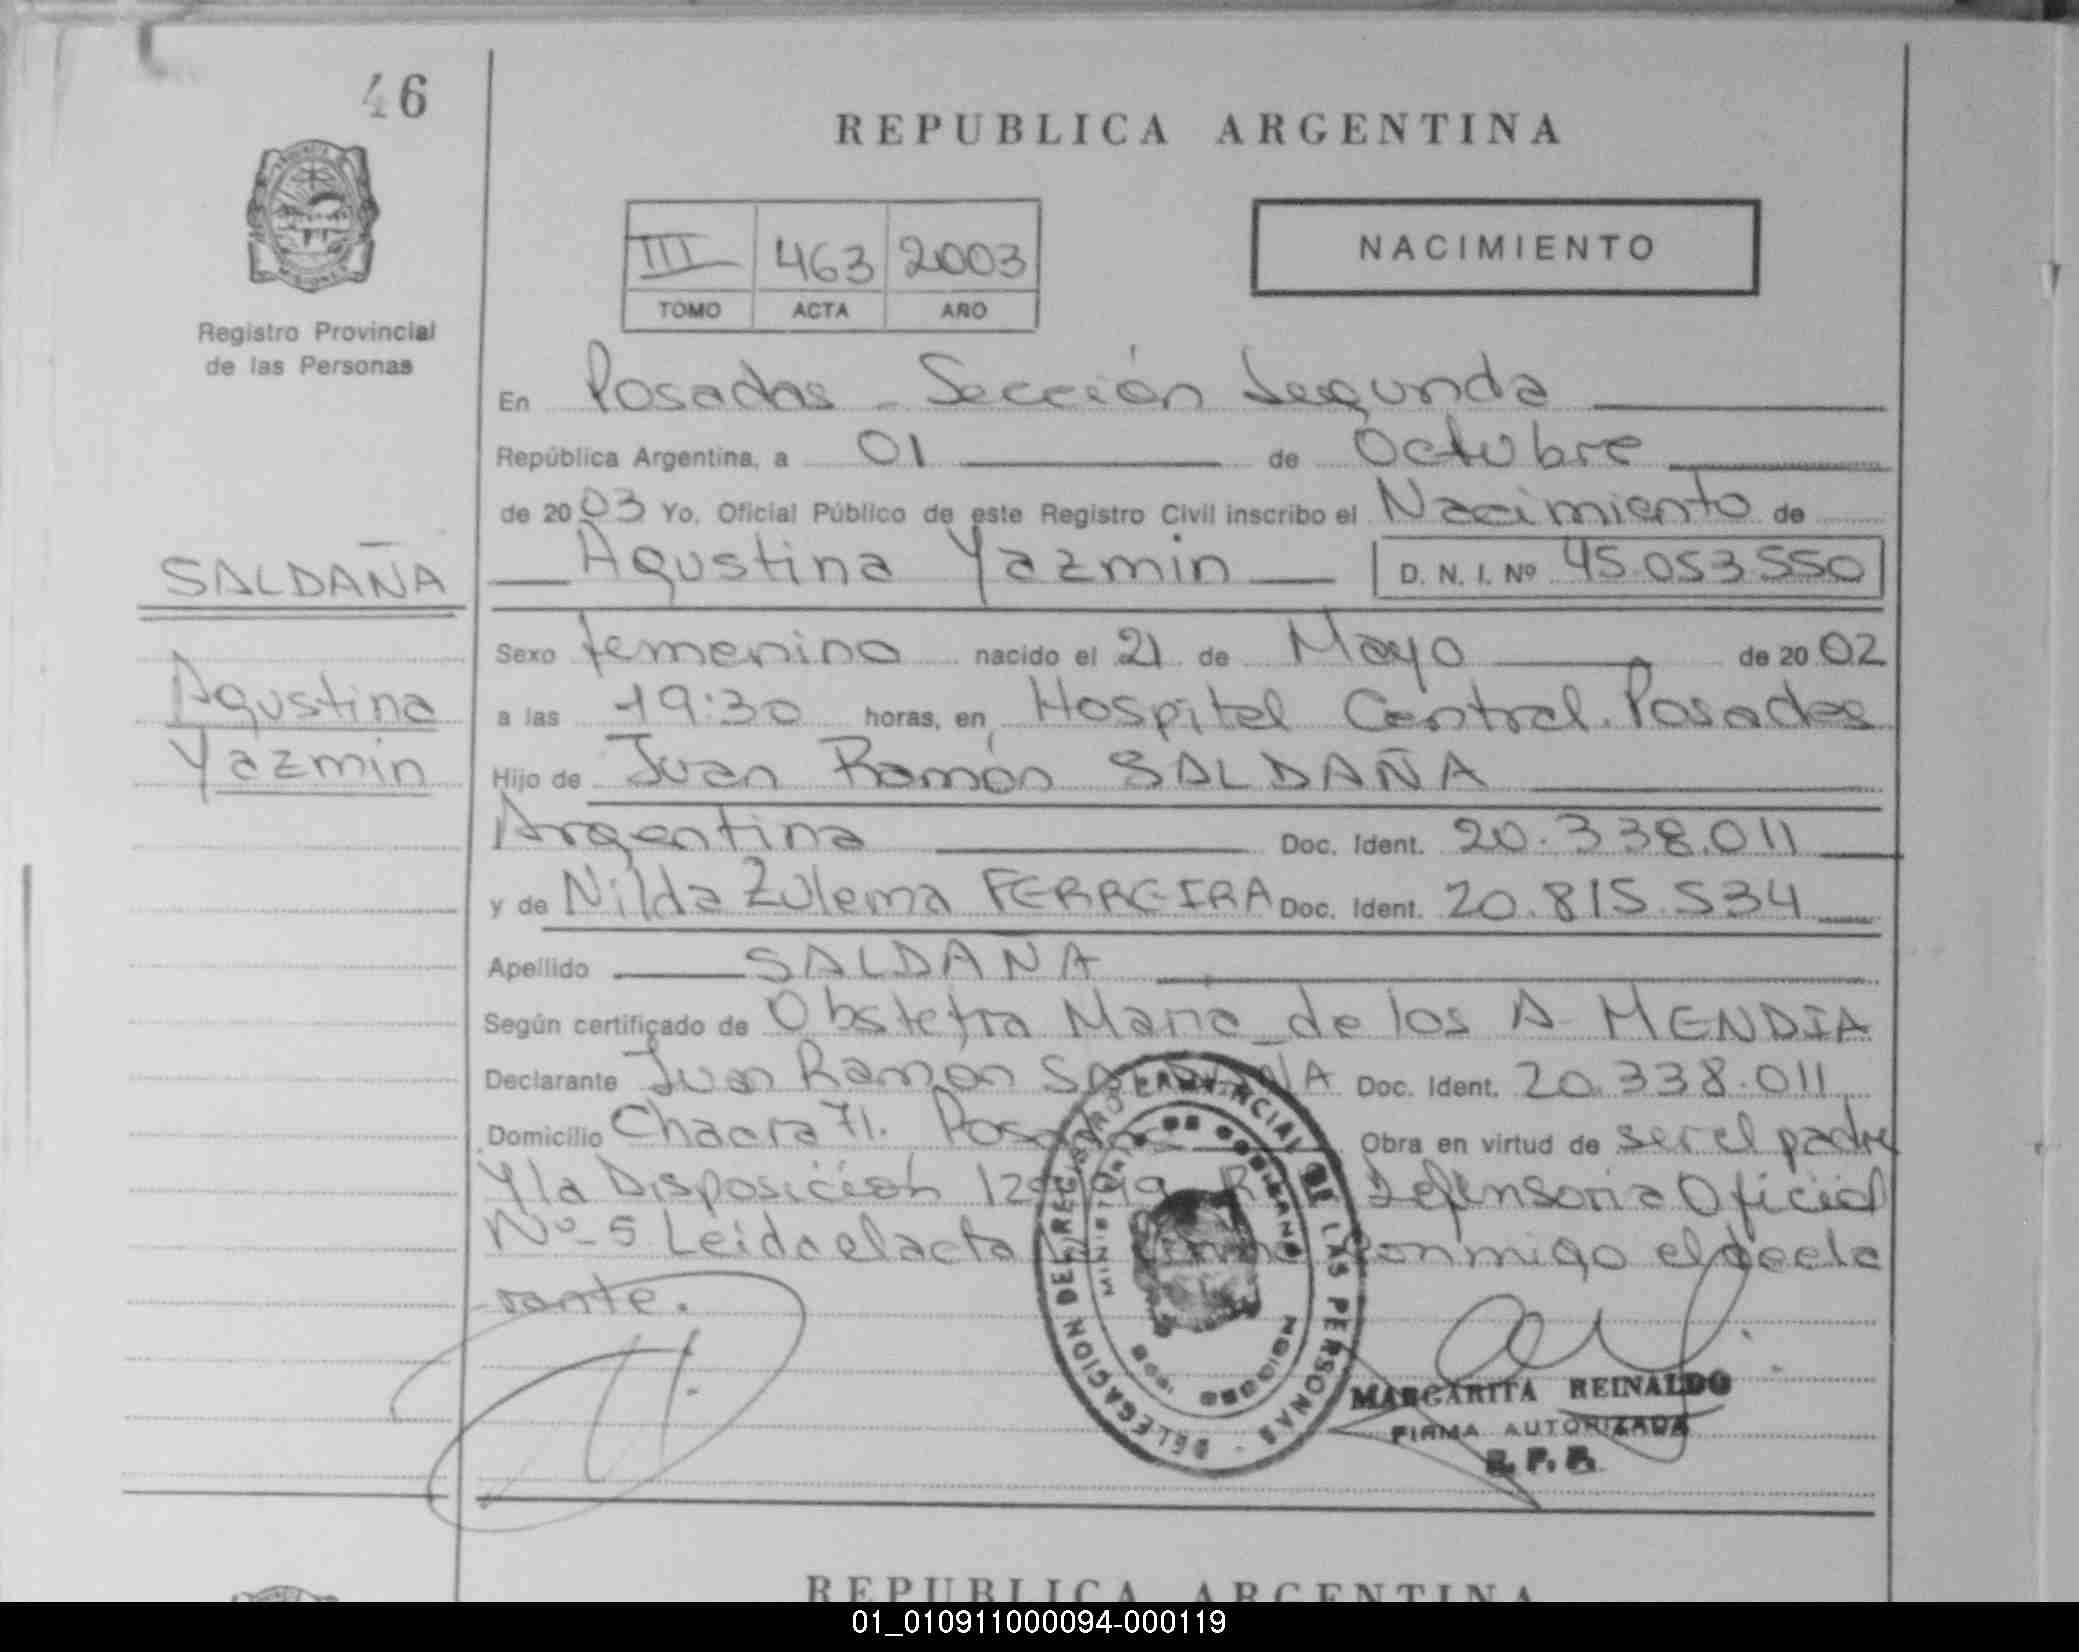 46
REPUBLICA ARGENTINA
III 463 2003
TOMO ACTA AÑO
NACIMIENTO
Registro Provincial
de las Personas
En Posadas - Sección Segunda
República Argentina, a 01 de Octubre
de 2003 Yo, Oficial Público de este Registro Civil inscribo el Nacimiento de
Agustina Yazmin D. N. I. Nº 45.053.550
SALDAÑA
Agustina
Yazmin
Sexo femenino nacido el 21 de Mayo de 2002
a las 19:30 horas, en Hospital Central. Posadas
Hijo de Juan Ramón SALDAÑA
Argentina Doc. Ident. 20.338.011
y de Nilda Zulema FERREIRA Doc. Ident. 20.815.534
Apellido SALDAÑA
Según certificado de Obstetra Maria de los A. MENDIA
Declarante Juan Ramon SALDAÑA Doc. Ident. 20.338.011
Domicilio Chacra 71. Posadas Obra en virtud de ser el padre
y la Disposición Defensoria Oficial
Nº 5 Leida el acta conmigo el decla
rante.
DELEGACION DEL REGISTRO PROVINCIAL DE LAS PERSONAS
MINISTERIO DE GOBIERNO
MISIONES
MARGARITA REINALDO
FIRMA AUTORIZADA
R. P. P.
REPUBLICA ARGENTINA
01_010911000094-000119